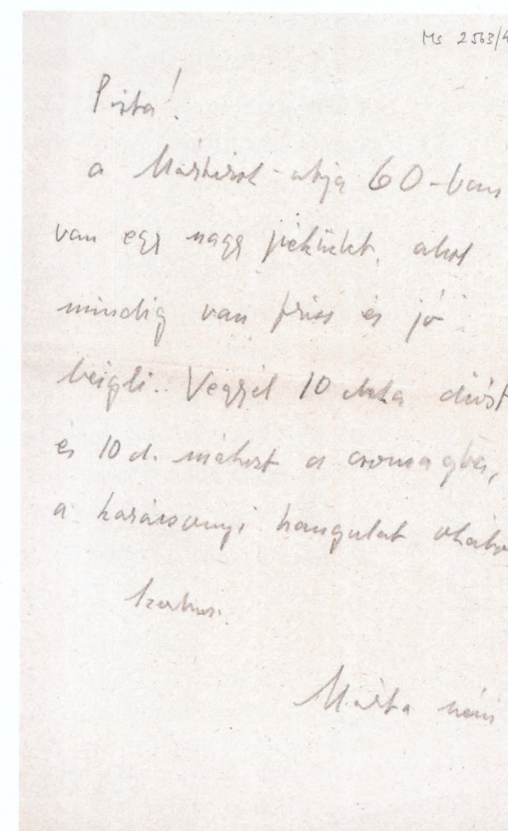 Ms 2563/4
Pista!
a Mártírok-útja 60-ban
van egy nagy péküzlet, ahol
mindig van friss és jó
beigli. Vegyél 10 deka dióst
és 10 d. mákost a csomagba,
a karácsonyi hangulat okábó
Márta néni